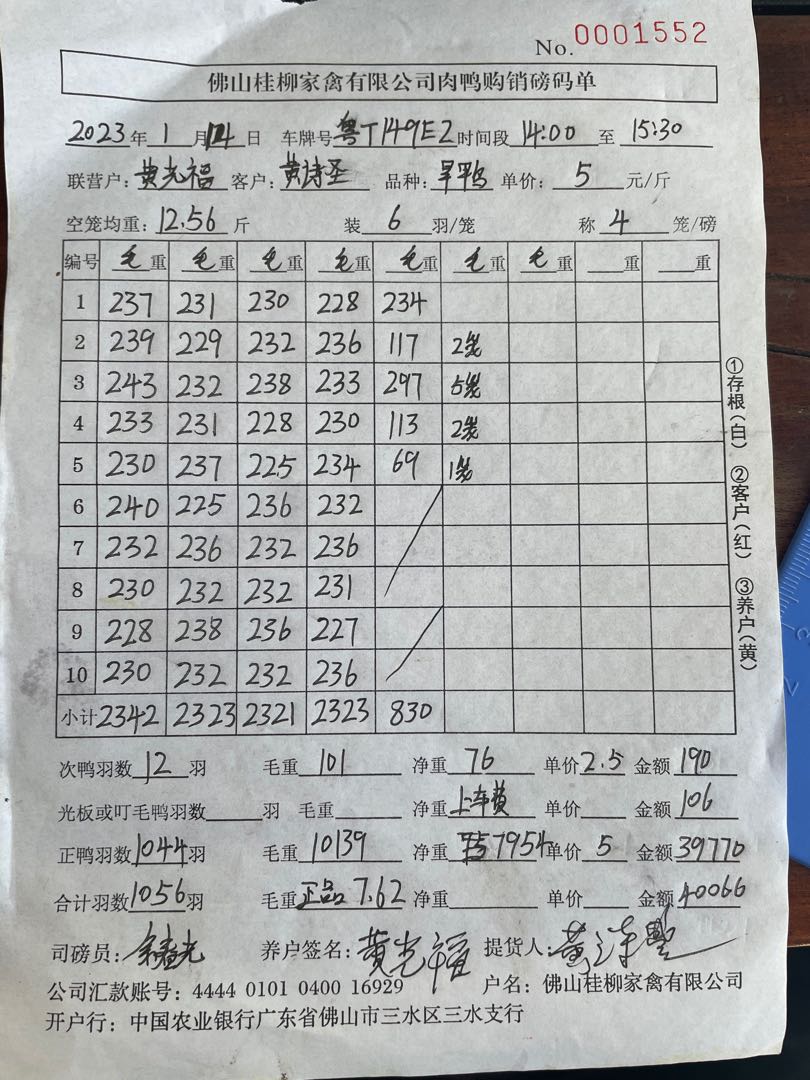 No. 0001552
佛山桂柳家禽有限公司肉鸭购销磅码单
2023年 1月 14日 车牌号 粤T149E2 时间段 14:00 至 15:30
联营户: 黄光福 客户: 黄诗圣 品种: 旱鸭 单价: 5 元/斤
空笼均重: 12.56 斤 装 6 羽/笼 称 4 笼/磅
编号 毛重 毛重 毛重 毛重 毛重 毛重 毛重 重 重
1 237 231 230 228 234
2 239 229 232 236 117 2笼
3 243 232 238 233 297 5笼
4 233 231 228 230 113 2笼
5 230 237 225 234 69 1笼
6 240 225 236 232
7 232 236 232 236
8 230 232 232 231
9 228 238 236 227
10 230 232 232 236
小计 2342 2323 2321 2323 830
①存根(白) ②客户(红) ③养户(黄)
次鸭羽数 12 羽 毛重 101 净重 76 单价 2.5 金额 190
光板或叮毛鸭羽数 羽 毛重 净重 上车费 单价 金额 106
正鸭羽数 1044 羽 毛重 10139 净重 7954 单价 5 金额 39770
合计羽数 1056 羽 毛重 正品 7.62 净重 单价 金额 40066
司磅员: 养户签名: 黄光福 提货人:
公司汇款账号: 4444 0101 0400 16929 户名: 佛山桂柳家禽有限公司
开户行: 中国农业银行广东省佛山市三水区三水支行